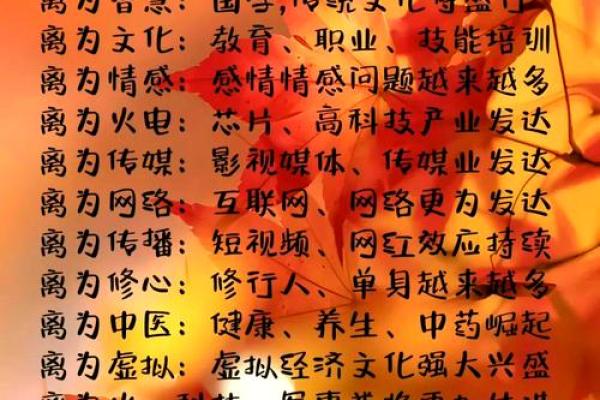 离为智慧：国学,传统文化等盛行
离为文化：教育、职业、技能培训
离为情感：感情情感问题越来越多
离为火电：芯片、高科技产业发达
离为传媒：影视媒体、传媒业发达
离为网络：互联网、网络更为发达
离为传播：短视频、网红效应持续
离为修心：修行人、单身越来越多
离为中医：健康、养生、中药崛起
离为虚拟：虚拟经济文化强大兴盛